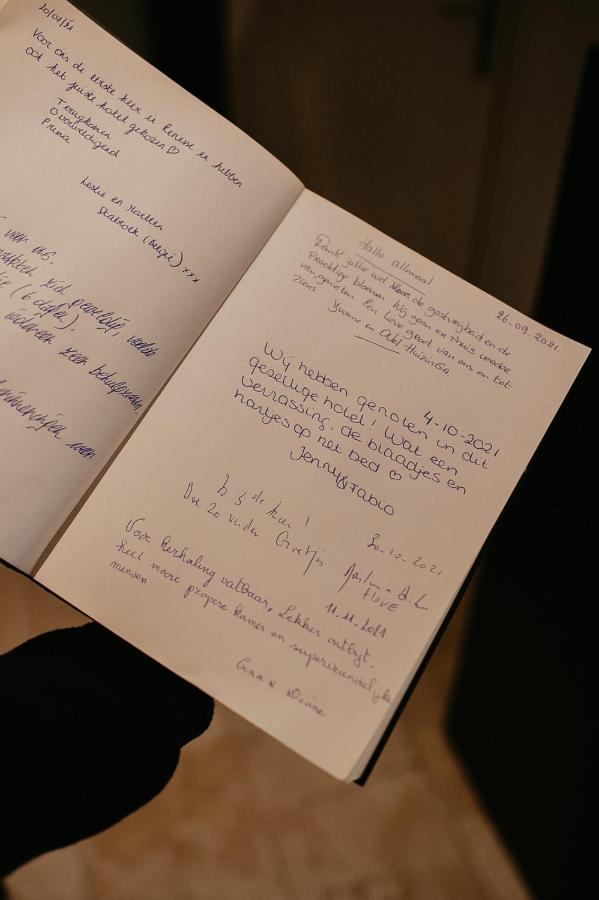 20/07/21
Voor ons de eerste keer in Renesse en hebben
ook het juiste hotel gekozen ♡
Terugkomen
Overweldigend
Prima
Leslie en
Stabroek (België) xxx
voor ons.
(6 dagen).
zeer behulpzaam,
Hallo allemaal
26-09-2021.
Dank jullie wel voor de gastvrijheid en de
Prachtige bloemen. Wij gaan er thuis verder
van genieten. Een lieve groet van ons en tot
Ziens
Yvonne en Abel Huizinga
4-10-2021
Wij hebben genoten in dit
gezellige hotel! Wat een
verrassing, de blaadjes en
hartjes op het bed ♡
Jenny & Fabio
20-10-2021
de keer!
Doe zo verder Groetjes
11-11-2021
Voor herhaling vatbaar, Lekker ontbijt,
heel mooie propere kamer en supervriendelijke
mensen
Gina & Diane